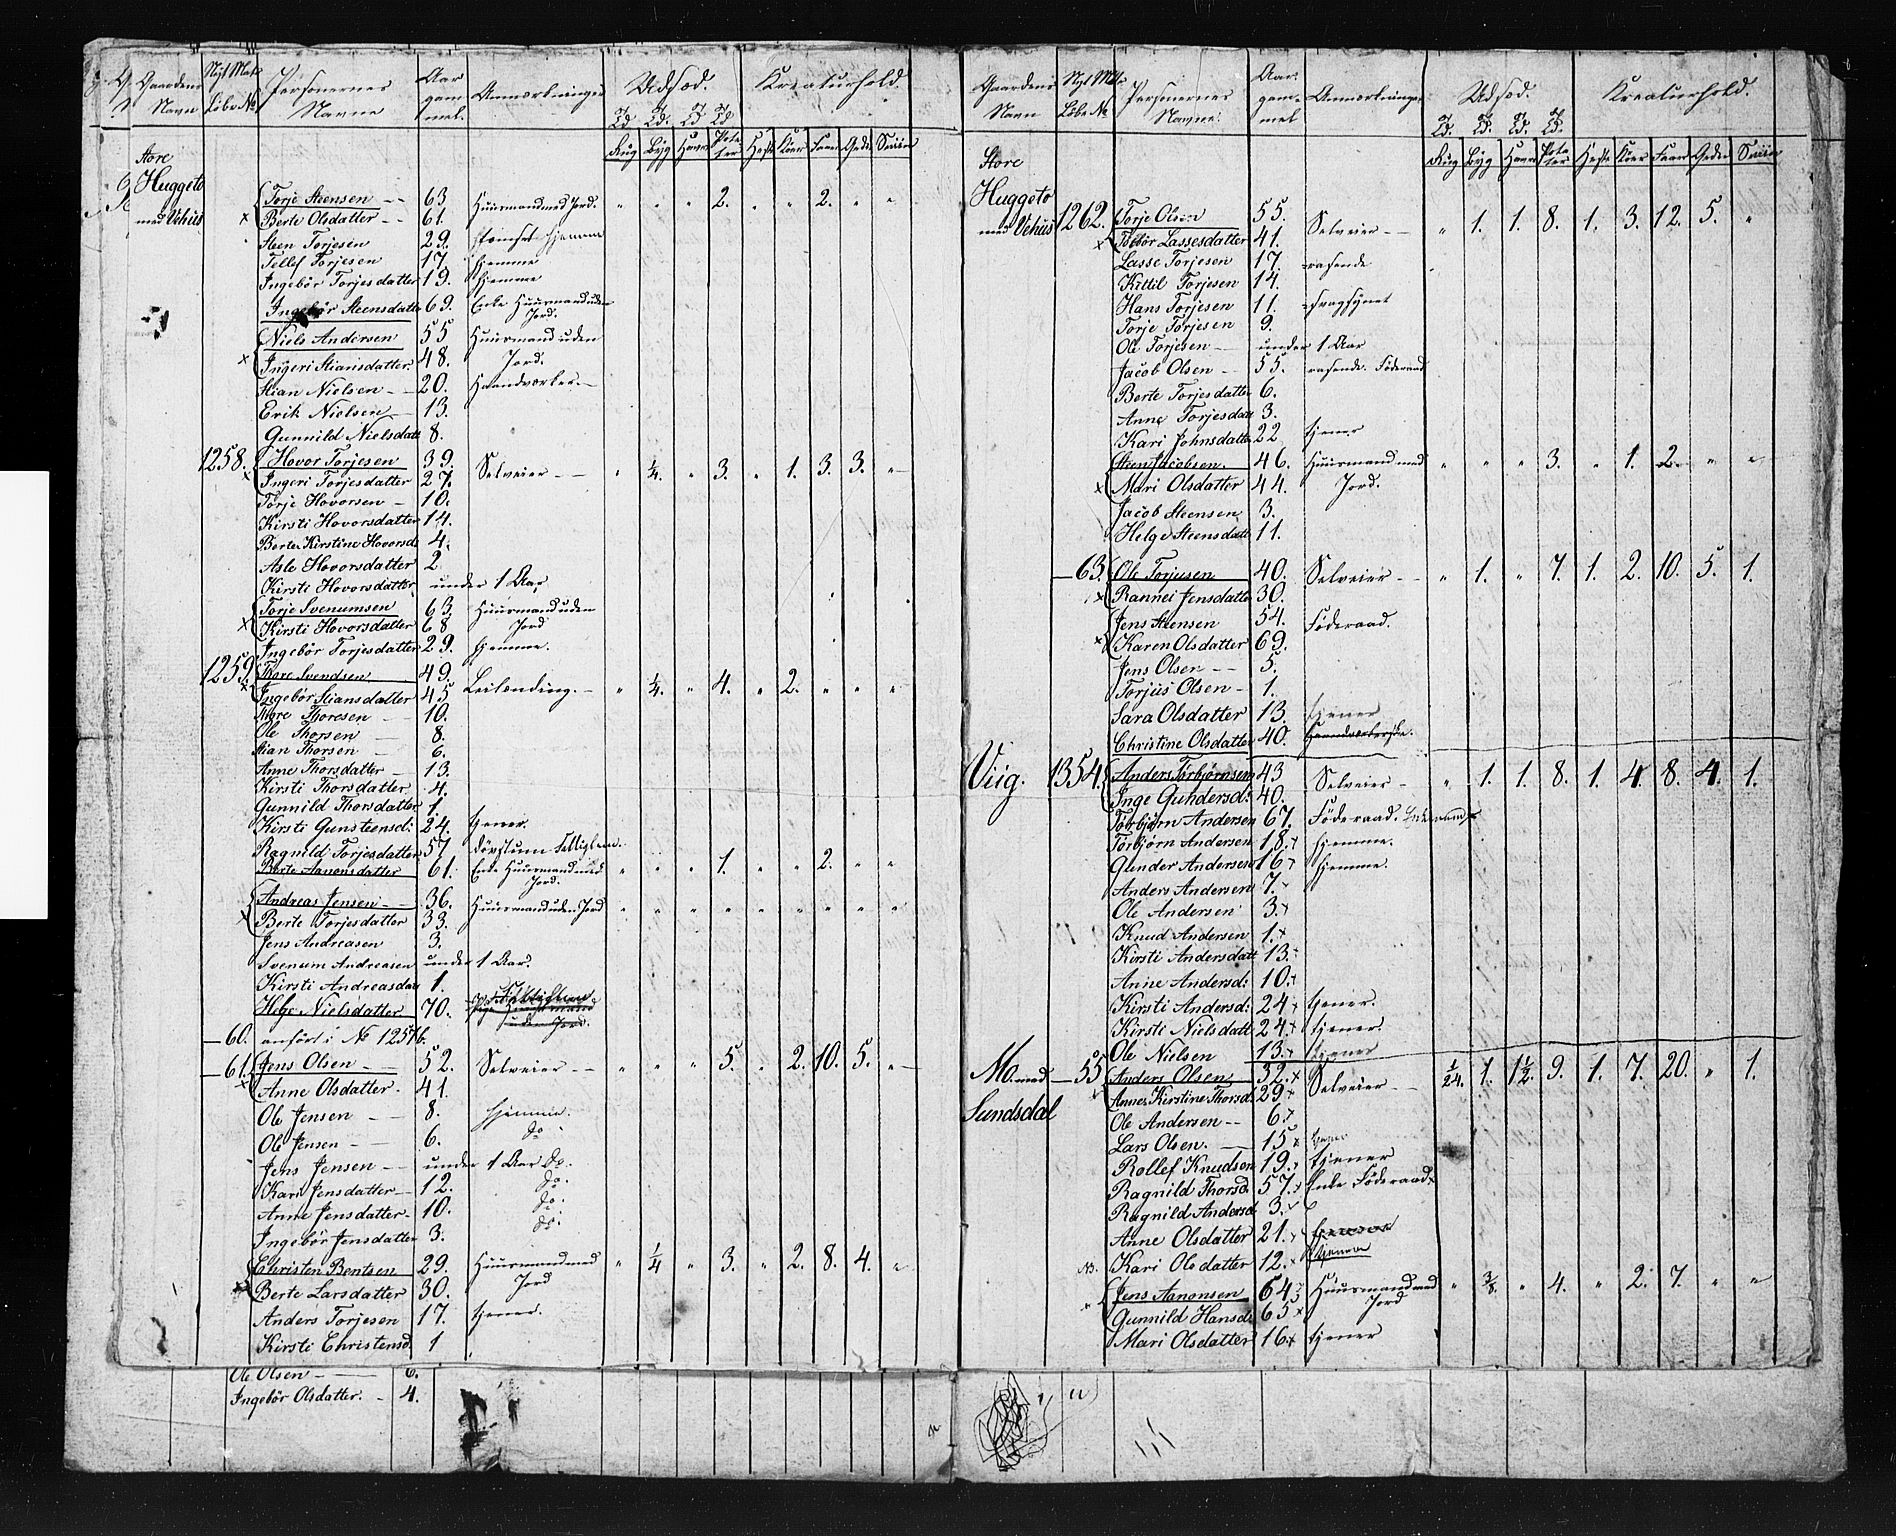 Gaardens Navn | Nyt Mat. Løbe No | Personernes Navne | Aar gammel | Anmærkninger | Udsæd. | Kreaturhold.
Td. Td. Td. Td.
Rug | Byg | Havre | Poteter | Heste | Køer | Faar | Geder | Sviin
Store
Huggeto
med Vehus
Torje Steensen 63 Huusmand med Jord. " " " 2. " " 2. " "
Berte Olsdatter 61.
Steen Torjesen 29. hjemme
Tellef Torjesen 17. hjemme
Ingebør Torjesdatter 19. hjemme
Ingebør Steensdatter 69. Enke Huusmand uden Jord.
Niels Andersen 55 Huusmand uden Jord.
Ingeri Stiansdatter. 48.
Stian Nielsen 20. Haandværker.
Erik Nielsen 13.
Gunnild Nielsdatt 8.
1258. Hovor Torjesen 39. Selveier " ¼. " 3. " 1. 3. 3. "
Ingeri Torjesdatter 27.
Torje Hovorsen 10.
Kirsti Hovorsdatter 14.
Berte Kirstine Hovorsd. 4.
Asle Hovorsdatter 2
Kirsti Hovorsdatter under 1 Aar
Torje Svenumsen 63. Huusmand uden Jord
Kirsti Hovorsdatter 68
Ingebør Torjesdatter 29. hjemme.
1259. Thore Svendsen 49. Leilending. " ¼. " 4. " 2. " " "
Ingebør Stiansdatter 45
Thore Thoresen 10.
Ole Thorsen 8.
Stian Thorsen 6.
Anne Thorsdatter 13.
Kirsti Thorsdatter 4.
Gunnild Thorsdatter 1.
Kirsti Gunsteensd: 24. tjener.
Ragnild Torjesdatter 57 døvstum Fattiglem.
Berte Aanonsdatter 61. Enke Huusmand med Jord. " " " 1. " " 2. " "
Andreas Jensen 36. Huusmand uden Jord " " " " " " " " "
Berte Torjesdatter 33.
Jens Andreasen 3.
Svenum Andreasen under 1 Aar.
Kirsti Andreasdat 1.
Helge Nielsdatter 70. Fattiglem uden Jord.
60. anført i No 1257
61. Jens Olsen 52. Selveier " " " 5. " 2. 10. 5. "
Anne Olsdatter 41.
Ole Jensen 8. hjemme.
Ole Jensen 6. do
Jens Jensen under 1 Aar do.
Kari Jensdatter 12. do.
Anne Jensdatter 10. do.
Ingebør Jensdatter 3. do.
Christen Bentsen 29. Huusmand med Jord " ¼ " 3. " 2. 8. 4. "
Berte Larsdatter 30.
Anders Torjesen 17. tjener.
Kirsti Christensd. 1
Ole Olsen 6.
Ingebør Olsdatter. 4.
Gaardens Navn | Nyt Mt. Løbe No | Personernes Navne. | Aar gammel | Anmærkninger | Udsæd. | Kreaturhold.
Td. Td. Td. Td.
Rug | Byg | Havre | Poteter | Heste | Køer | Faar | Geder | Sviin
Store
Huggeto
med Vehus 1262. Torje Olsen 55. Selveier " 1. 1. 8. 1. 3. 12. 5. "
Torbør Lassesdatter 41.
Lasse Torjesen 17. rasende
Kittil Torjesen 14.
Hans Torjesen 11. svagsynet
Torje Torjesen 9.
Ole Torjesen under 1 Aar
Jacob Olsen 55. rasende. Föderaad
Berte Torjesdatter 6.
Anne Torjesdatt 3.
Kari Johnsdatter 22 tjener
Steen Jacobsen. 46. Huusmand med Jord. " " " 3. " 1. 2. " "
Mari Olsdatter 44.
Jacob Steensen 3.
Helge Steensdatt 11.
63. Ole Torjusen 40. Selveier " 1. " 7. 1. 2. 10. 5. 1.
Rannei Jensdatter 30.
Jens Steensen 54. Föderaad.
Karen Olsdatter 69.
Jens Olsen 5.
Torjus Olsen 1.
Sara Olsdatter 13. tjener
Christine Olsdatter 40. Haandværkerske.
Viig. 1354. Anders Torbjørnsen 43 Selveier " 1. 1. 8. 1. 4. 8. 4. 1.
Inge Gundersd: 40.
Torbjørn Andersen 67. Föderaad. Enkemand
Torbjørn Andersen 18. hjemme.
Gunder Andersen 16 hjemme.
Anders Andersen 7.
Ole Andersen 3.
Knud Andersen 1.
Kirsti Andersdatt 13.
Anne Andersd: 10.
Kirsti Andersd: 24 tjener.
Kirsti Nielsdatt 24. tjener.
Ole Nielsen 13. tjener
Mo. med Sundsdal 55 Anders Olsen 32. Selveier 1/24. 1. 1½. 9. 1. 7. 20. " 1.
Anne Kirstine Thorsd. 29
Ole Andersen 6.
Lars Olsen. 15 tjener
Rollef Knudsen 19. tjener
Ragnild Thorsd. 57. Enke Föderaad.
Ragnild Andersd 3.
Anne Olsdatter 21.
Kari Olsdatter 12. tjener
NB. Jens Aanonsen 64 Huusmand med Jord " 3/8. " 4. " 2. 7. " "
Gunnild Hansd: 65
Mari Olsdatter 16 tjener